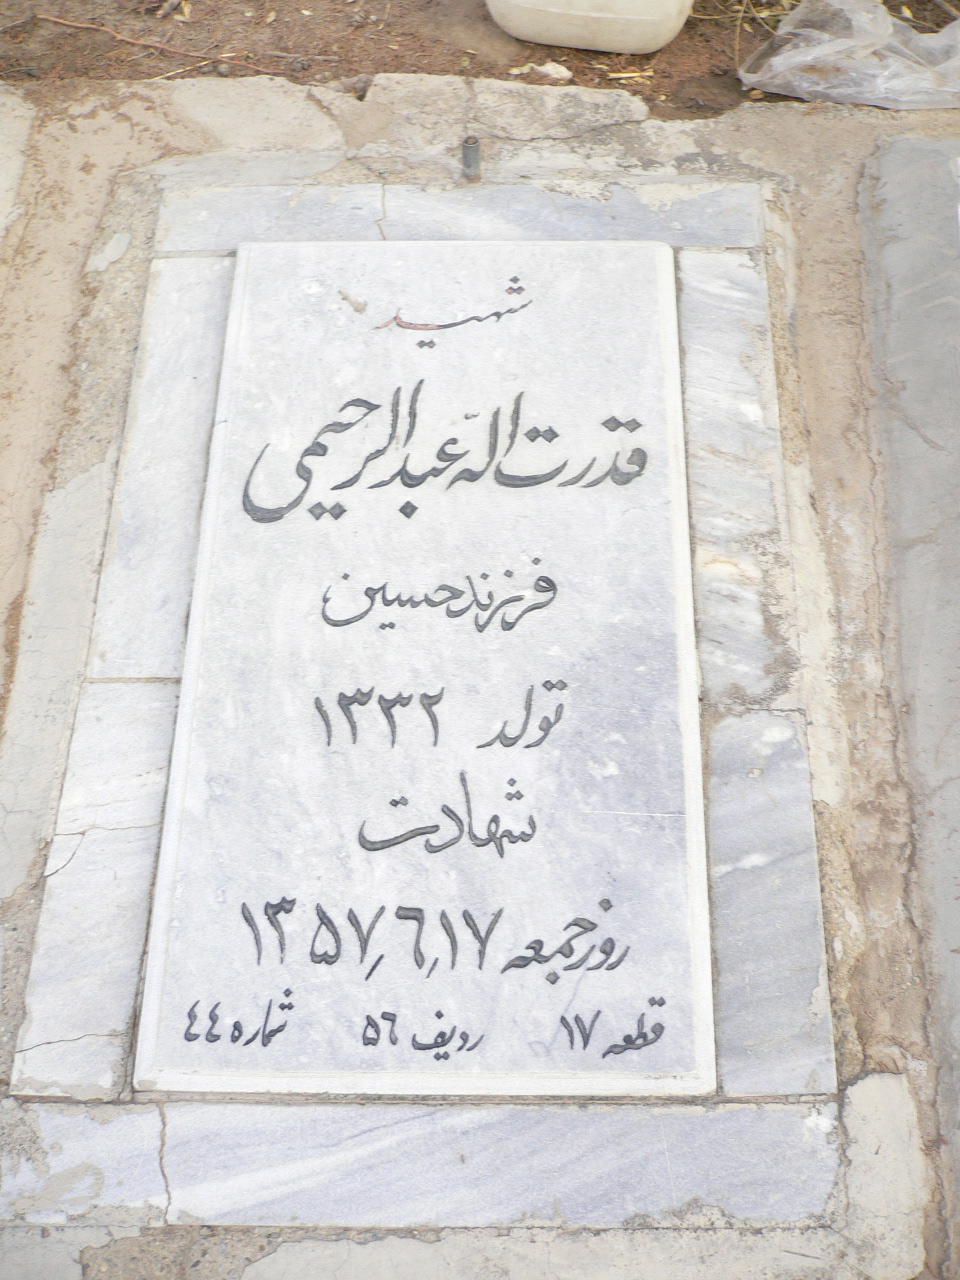 شهید
قدرت اله عبدالرحیمی
فرزند حسین
تولد ۱۳۳۲
شهادت
روز جمعه ۱۷٫۶٫۱۳۵۷
قطعه ۱۷ ردیف ۵۶ شماره ۴۴